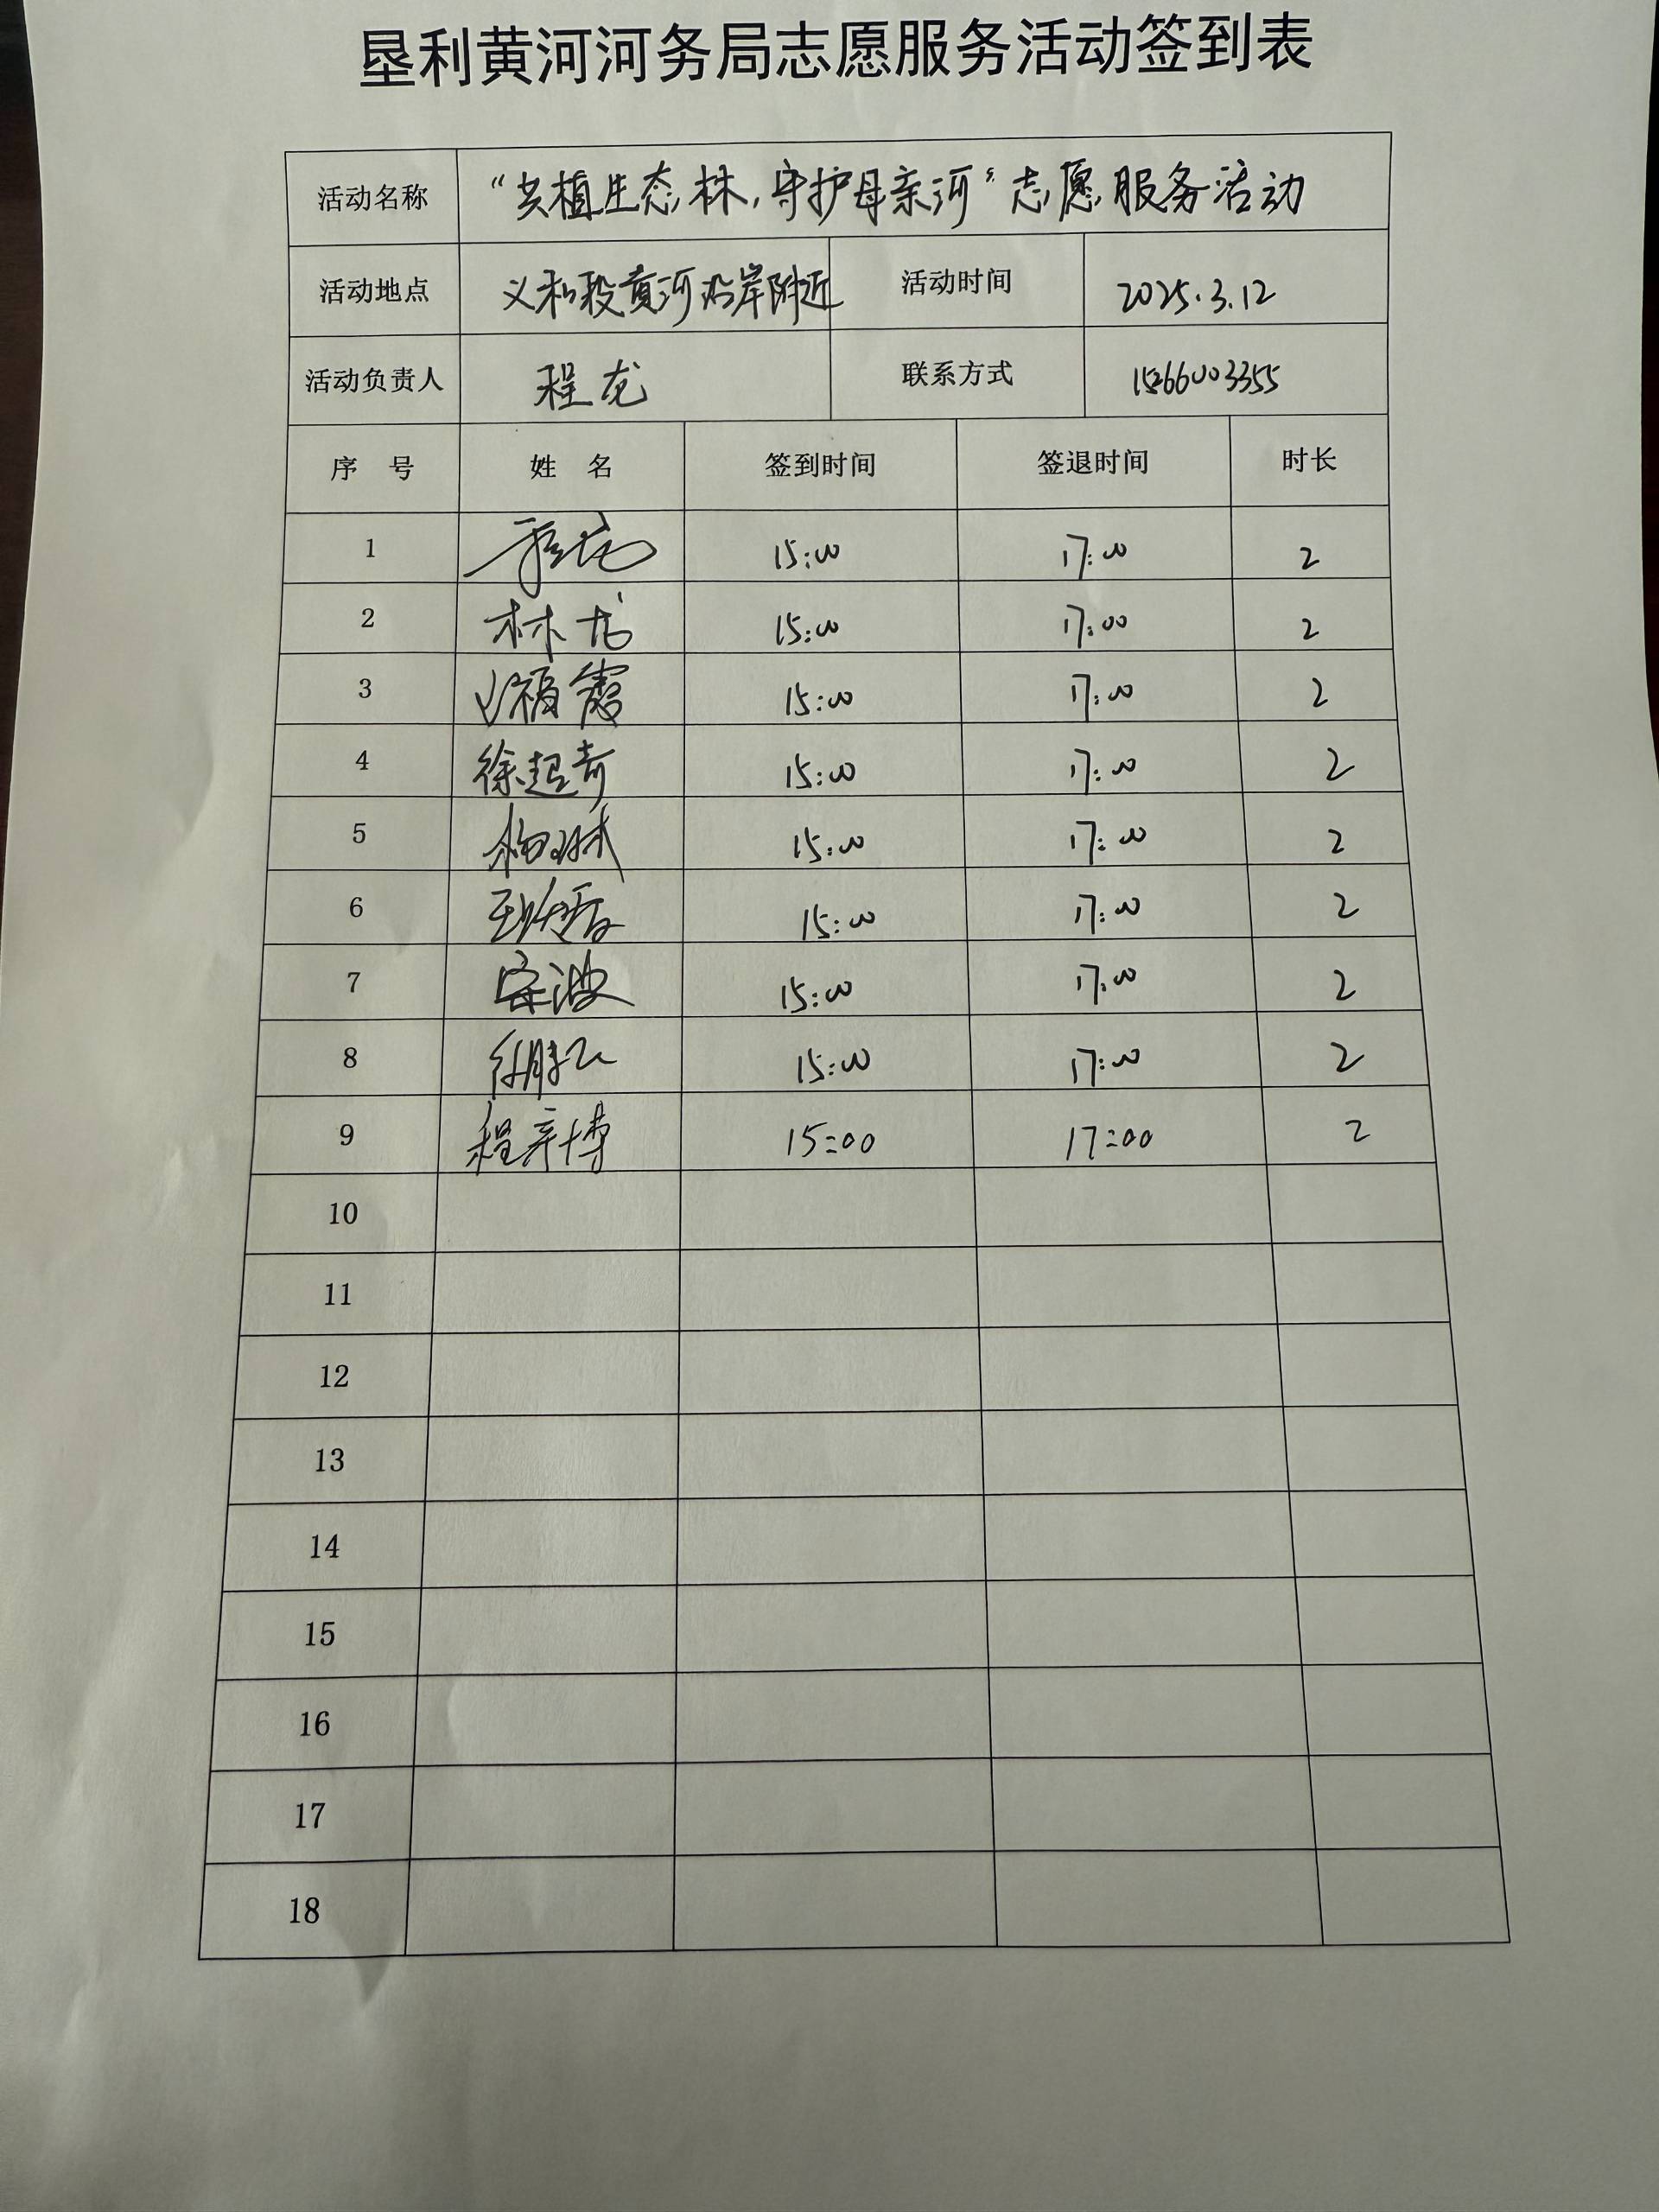 垦利黄河河务局志愿服务活动签到表
活动名称 “共植生态林,守护母亲河”志愿服务活动
活动地点 义和段黄河沿岸附近 活动时间 2025.3.12
活动负责人 程龙 联系方式
序 号 姓 名 签到时间 签退时间 时长
1 程龙 15:00 17:00 2
2 林龙 15:00 17:00 2
3 15:00 17:00 2
4 徐超奇 15:00 17:00 2
5 杨琳 15:00 17:00 2
6 15:00 17:00 2
7 15:00 17:00 2
8 15:00 17:00 2
9 15:00 17:00 2
10
11
12
13
14
15
16
17
18